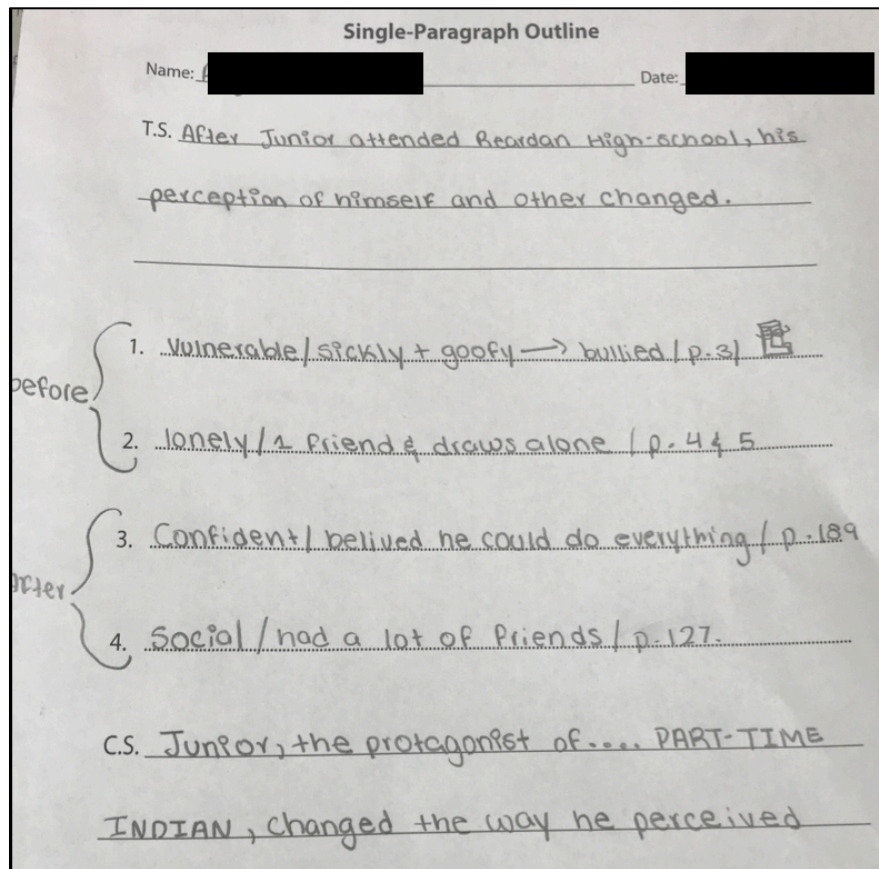 Single-Paragraph Outline
Name: Date:
T.S. After Junior attended Reardan High-school, his
perception of himself and other changed.
before
1. Vulnerable/sickly + goofy → bullied / p.3/
2. lonely/1 friend & draws alone / p. 4 & 5
after
3. Confident/ belived he could do everything / p.189
4. Social / had a lot of friends / p.127.
C.S. Junior, the protagonist of.... PART-TIME
INDIAN, changed the way he perceived